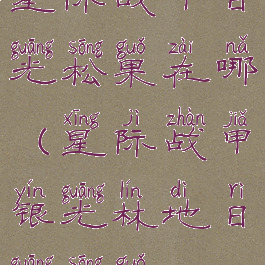 guāng sōng guǒ zài nǎ
光松果在哪
xīng jì zhàn jiǎ
(星际战甲
yín guāng lín dì rì
银光林地日
guāng sōng guǒ